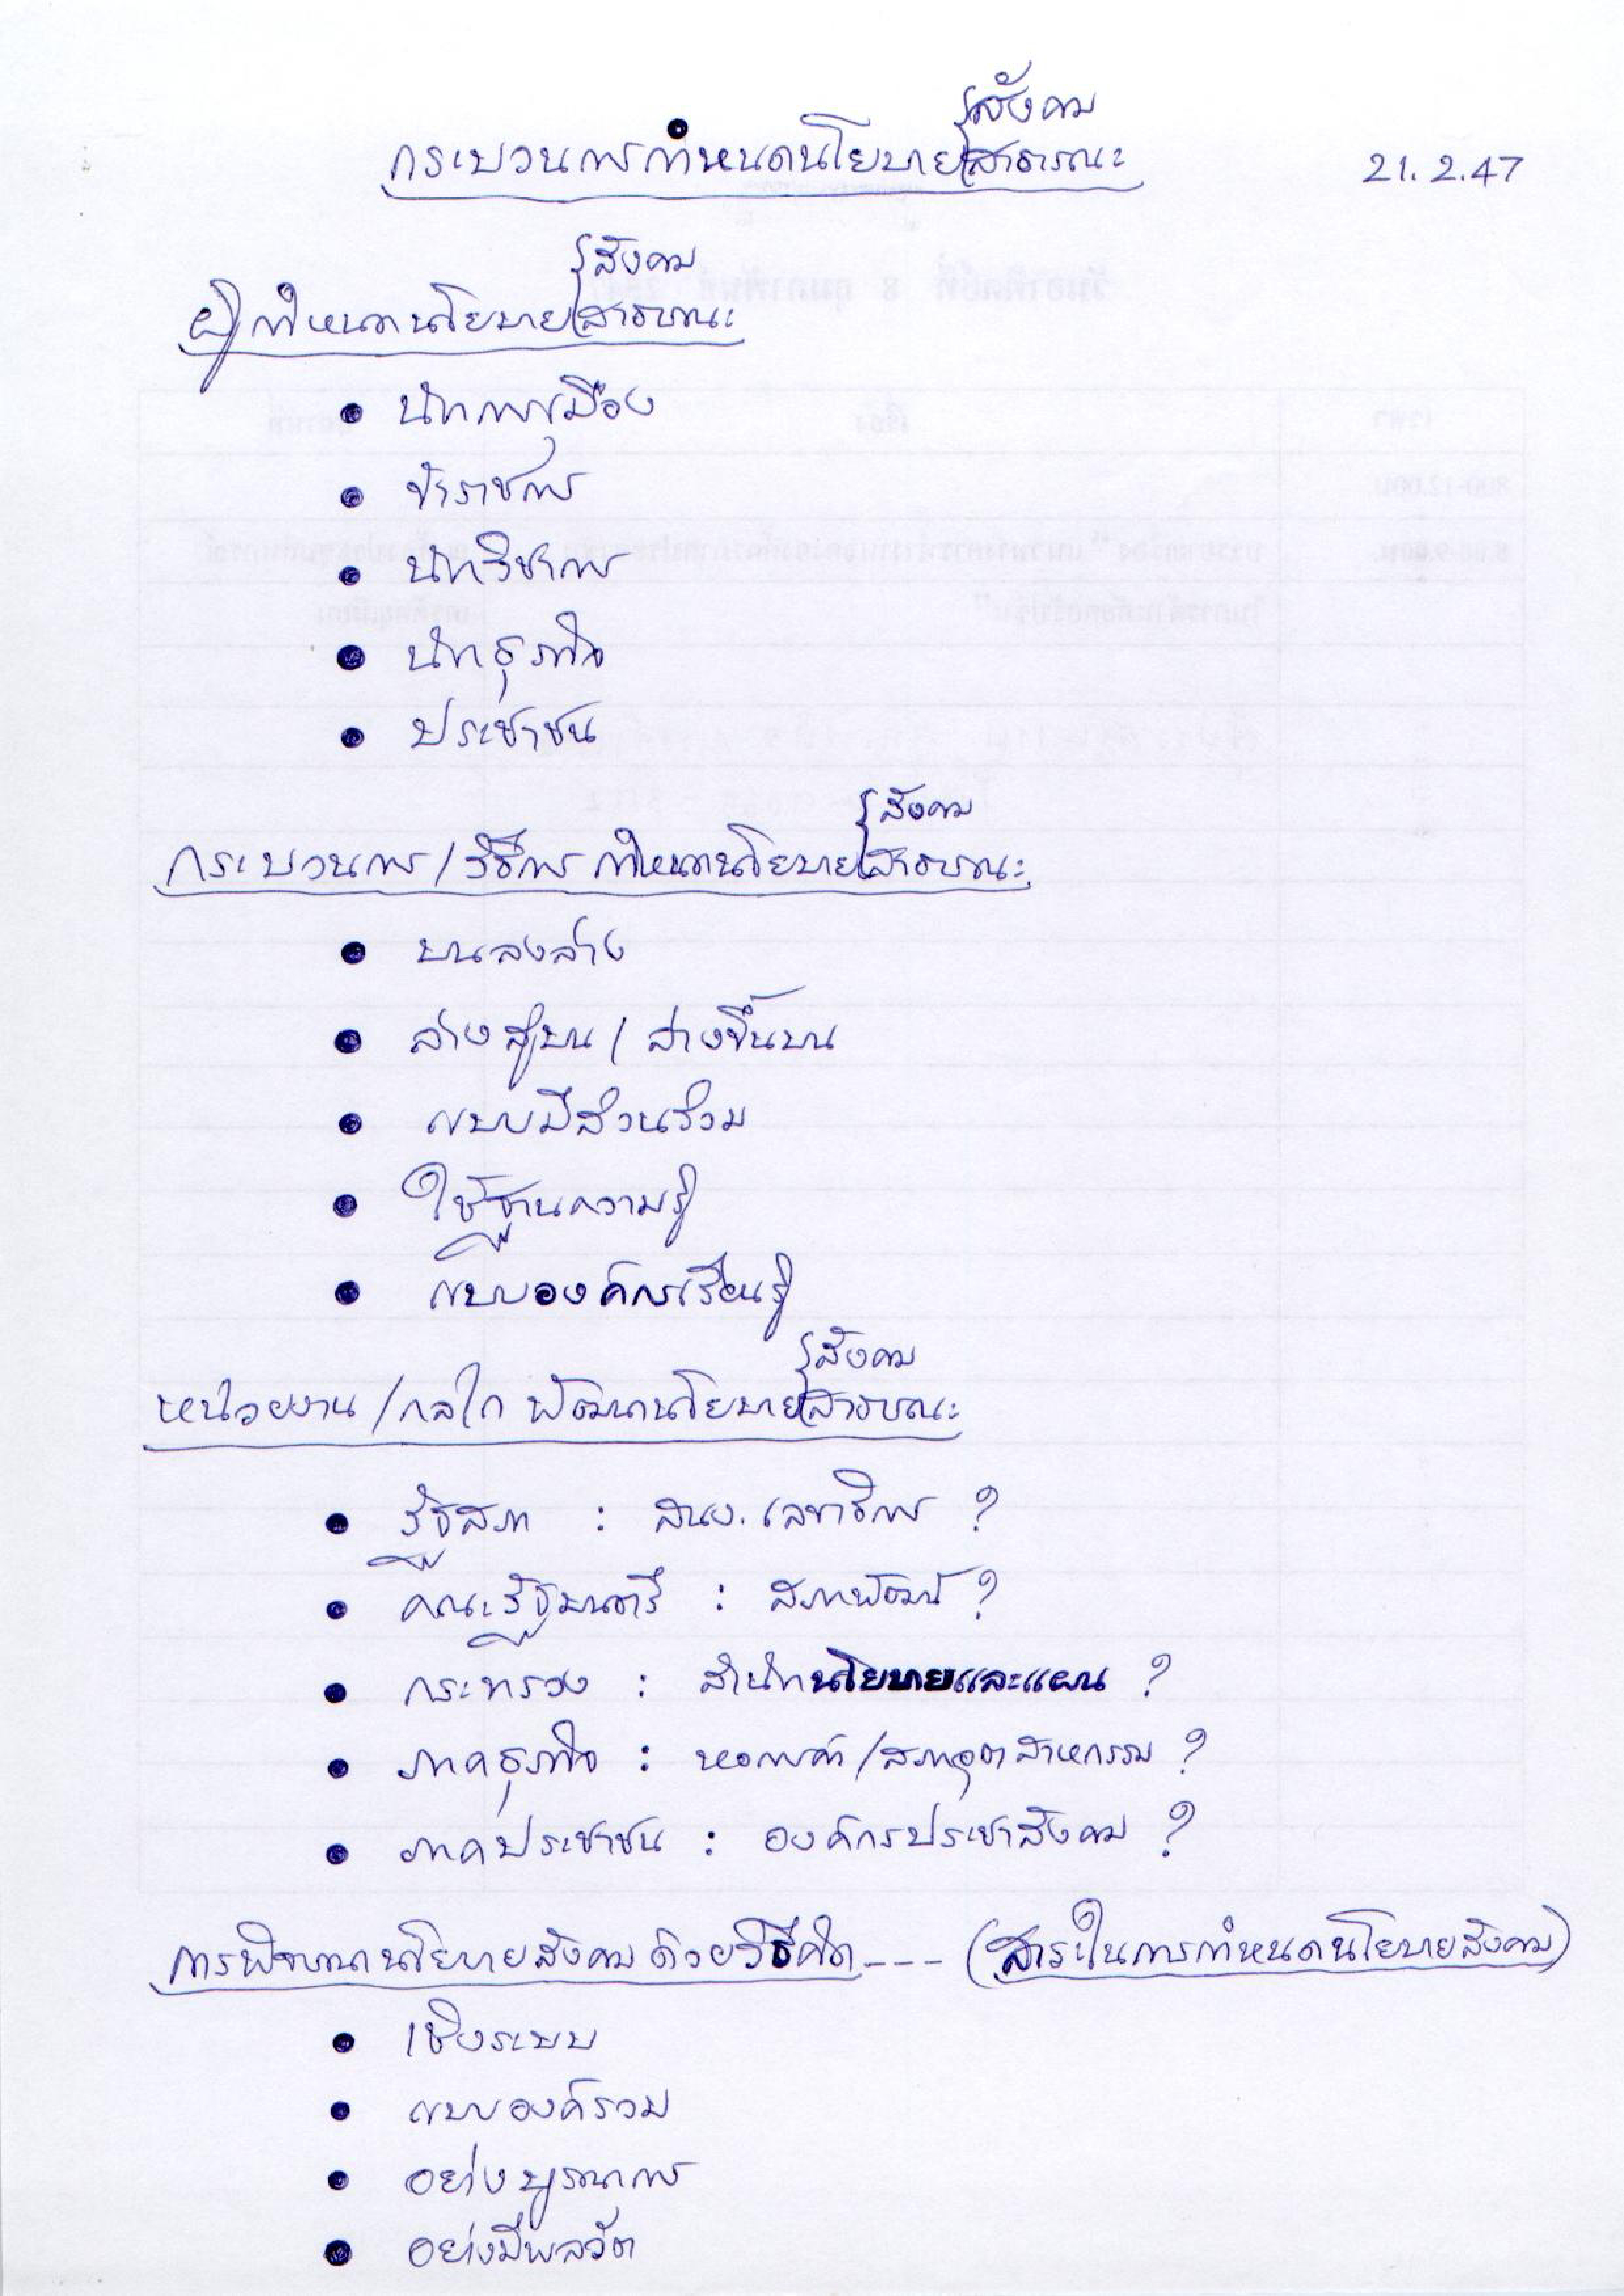 กระบวนการกำหนดนโยบาย{สังคม/สาธารณะ 21.2.47
ผู้กำหนดนโยบาย{สังคม/สาธารณะ
• นักการเมือง
• ข้าราชการ
• นักวิชาการ
• นักธุรกิจ
• ประชาชน
กระบวนการ/วิธีการ กำหนดนโยบาย{สังคม/สาธารณะ
• บนลงล่าง
• ล่างสู่บน / ล่างขึ้นบน
• แบบมีส่วนร่วม
• ใช้ฐานความรู้
• แบบองค์กรเรียนรู้
หน่วยงาน/กลไก พัฒนานโยบาย{สังคม/สาธารณะ
• รัฐสภา : สนง. เลขาธิการ ?
• คณะรัฐมนตรี : สภาพัฒน์ ?
• กระทรวง : สำนักนโยบายและแผน ?
• ภาคธุรกิจ : หอการค้า/สภาอุตสาหกรรม ?
• ภาคประชาชน : องค์กรประชาสังคม ?
การพิจารณานโยบายสังคมด้วยวิธีคิด---- (สาระในการกำหนดนโยบายสังคม)
• เชิงระบบ
• แบบองค์รวม
• อย่างบูรณาการ
• อย่างมีพลวัต